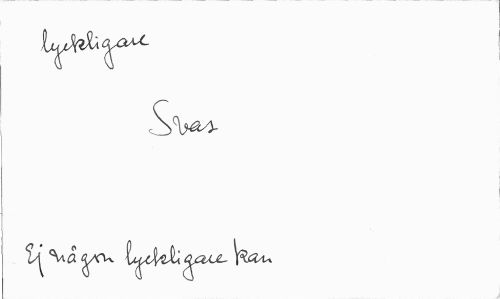 lyckligare
Svas
Ej någon lyckligare kan